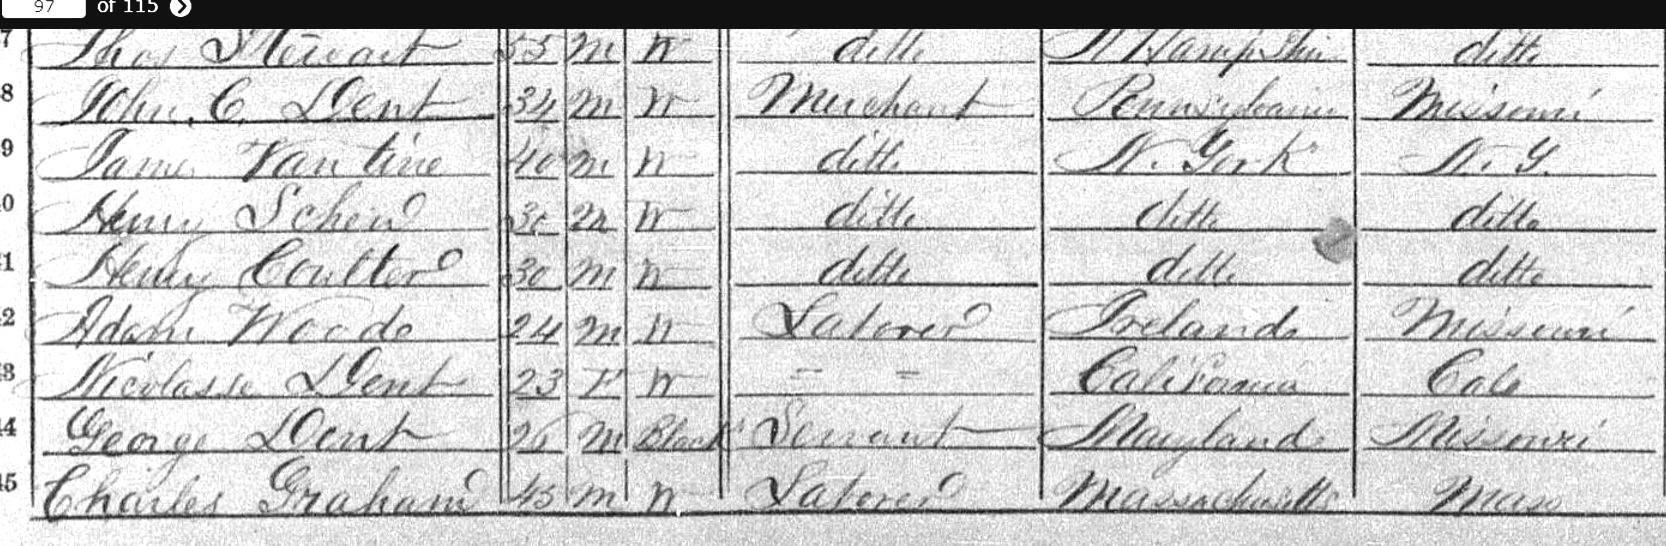 97 of 115
7 Thos Stewart 55 M W ditto N Hampshire ditto
8 John. C. Dent 34 M W Merchant Pennsylvania Missouri
9 James Van tine 40 M W ditto N. York N. Y.
0 Henry 30 M W ditto ditto ditto
1 Henry Coulter 30 M W ditto ditto ditto
2 Adam Woods 24 M W Laborer Ireland Missouri
3 Nicolassa Dent 23 F W - - California Cala
4 George Dent 26 M Black Servant Maryland Missouri
5 Charles Graham 45 M W Laborer Massachusetts Mass